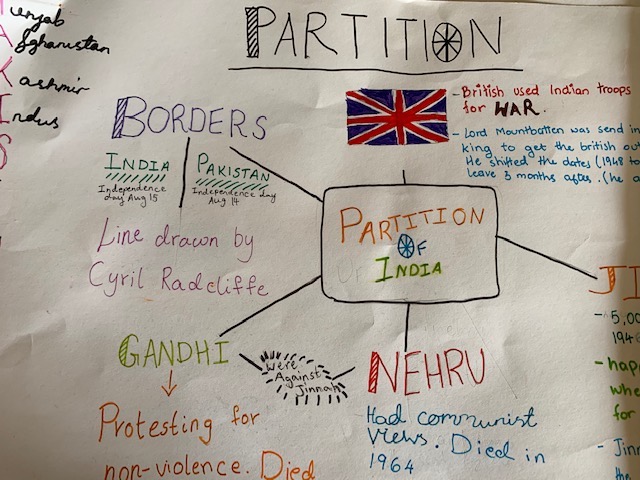 PARTITION
unjab
fghanistan
ashmir
Indus
S
BORDERS
INDIA
Independence
day Aug 15
PAKISTAN
Independence day
Aug 14
Line drawn by
Cyril Radcliffe
- British used Indian troops
for WAR.
- Lord Mountbatten was send in
king to get the british
He shifted the dates (1948 to
leave 3 months after. (he
PARTITION
OF
INDIA
GANDHI
Protesting for
non-violence. Died
Were
Against
Jinnah
NEHRU
Had communist
views. Died in
1964
JI
- hap
whe
for
- Jinn
the